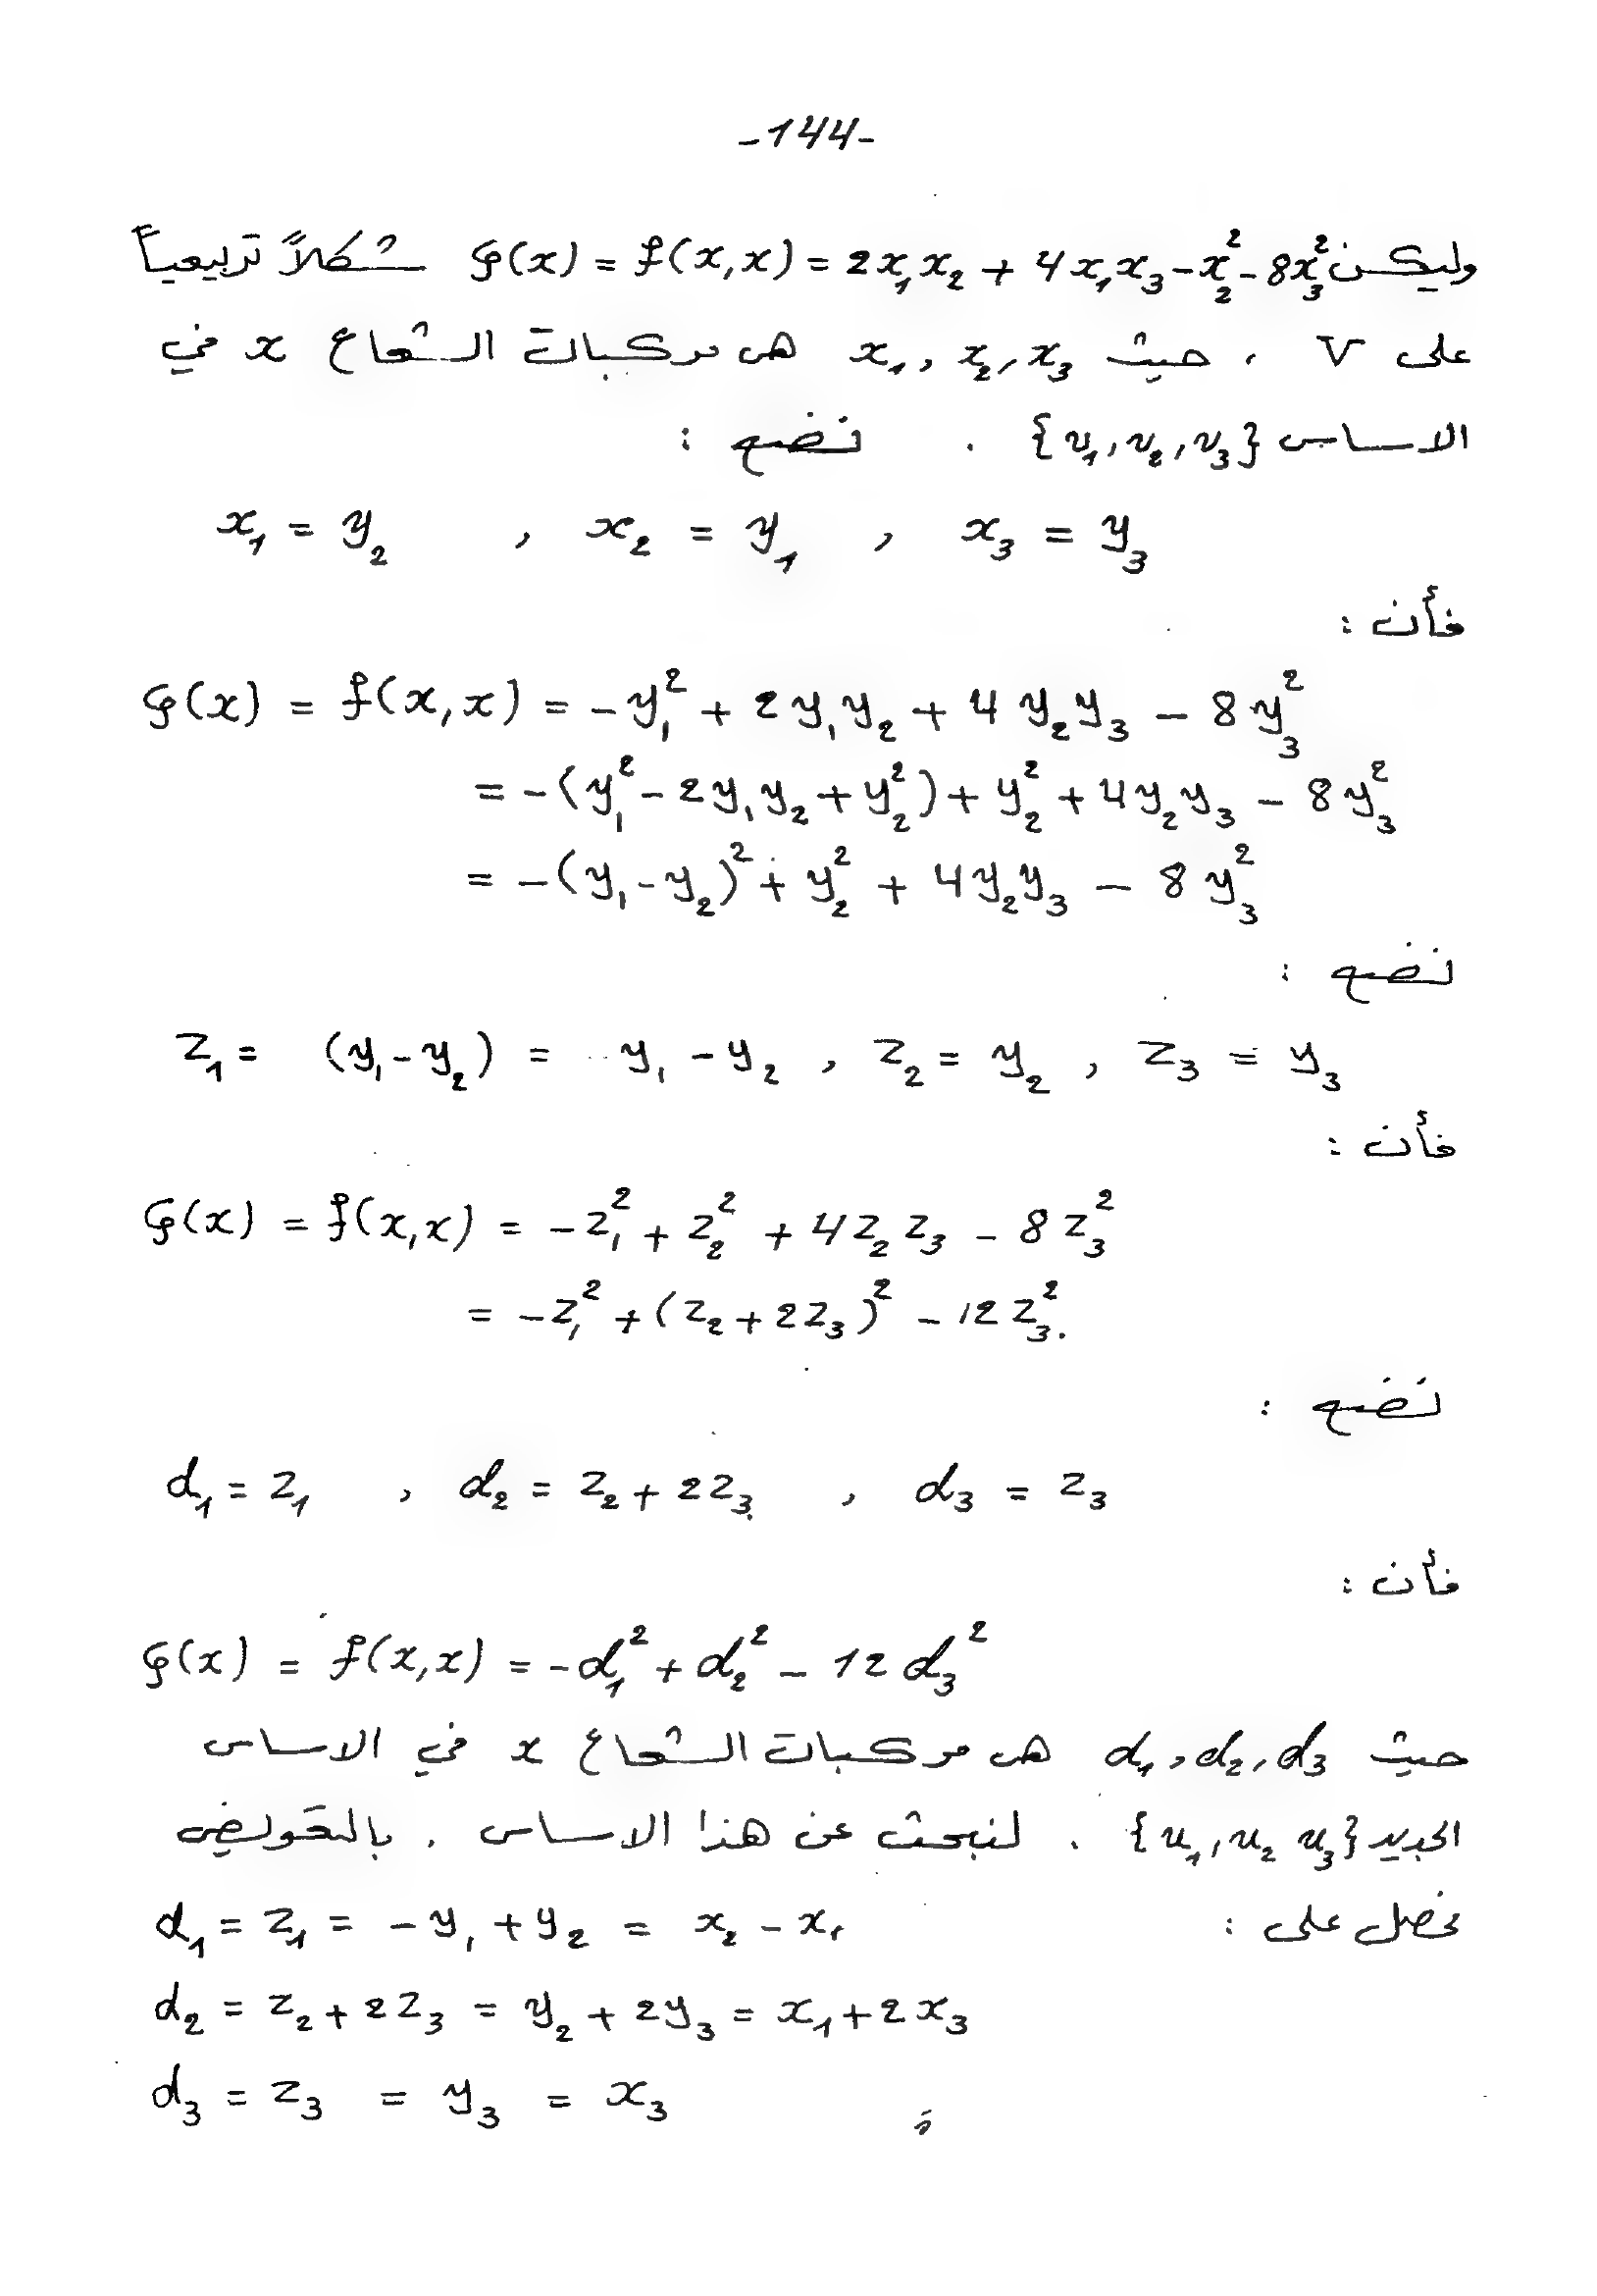 -144-
وليكن φ(x) = f(x,x) = 2x₁x₂ + 4x₁x₃ - x₂² - 8x₃² شكلاً تربيعياً
على V ، حيث x₁, x₂, x₃ هي مركبات الشعاع x في
الاساس {v₁, v₂, v₃} . نضع :
x₁ = y₂ , x₂ = y₁ , x₃ = y₃
فأن :
φ(x) = f(x,x) = -y₁² + 2y₁y₂ + 4y₂y₃ - 8y₃²
= -(y₁² - 2y₁y₂ + y₂²) + y₂² + 4y₂y₃ - 8y₃²
= -(y₁ - y₂)² + y₂² + 4y₂y₃ - 8y₃²
نضع :
z₁ = (y₁ - y₂) = y₁ - y₂ , z₂ = y₂ , z₃ = y₃
فأن :
φ(x) = f(x,x) = -z₁² + z₂² + 4z₂z₃ - 8z₃²
= -z₁² + (z₂ + 2z₃)² - 12z₃².
نضع :
d₁ = z₁ , d₂ = z₂ + 2z₃ , d₃ = z₃
فأن :
φ(x) = f(x,x) = -d₁² + d₂² - 12d₃²
حيث d₁, d₂, d₃ هي مركبات الشعاع x في الاساس
الجديد {u₁, u₂ u₃} . لنبحث عن هذا الاساس . بالتعويض
نحصل على : d₁ = z₁ = -y₁ + y₂ = x₂ - x₁
d₂ = z₂ + 2z₃ = y₂ + 2y₃ = x₁ + 2x₃
d₃ = z₃ = y₃ = x₃